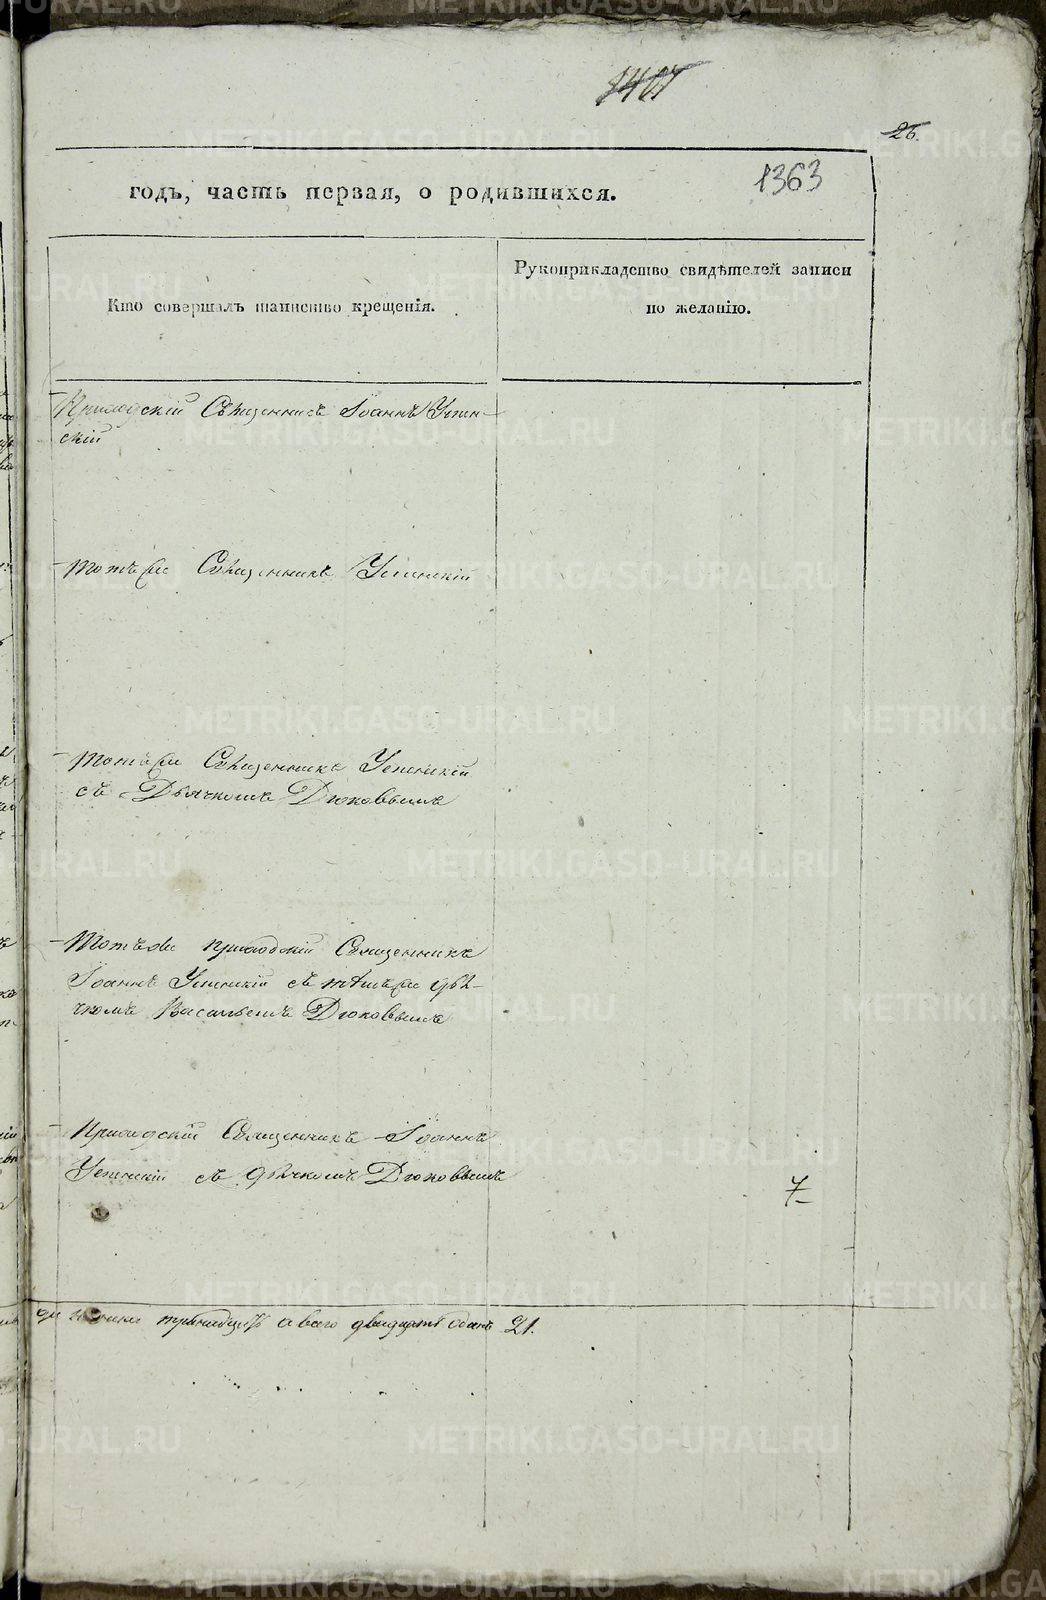 1363
годъ, часть первая, о родившихся.
Кто совершалъ таинство крещенія.
Рукоприкладство свидѣтелей записи
по желанію.
Приходскій Священникъ Іоаннъ
скій
Тотъже Священникъ
Тотъже Священникъ
съ Дьячкомъ Дюковымъ
Тотъже приходскій Священникъ
Іоаннъ съ тѣмъже дья-
чкомъ Васильемъ Дюковымъ
Приходскій Священникъ Іоаннъ
съ дьячкомъ Дюковымъ
7
а всего двадцать одинъ 21.
METRIKI.GASO-URAL.RU